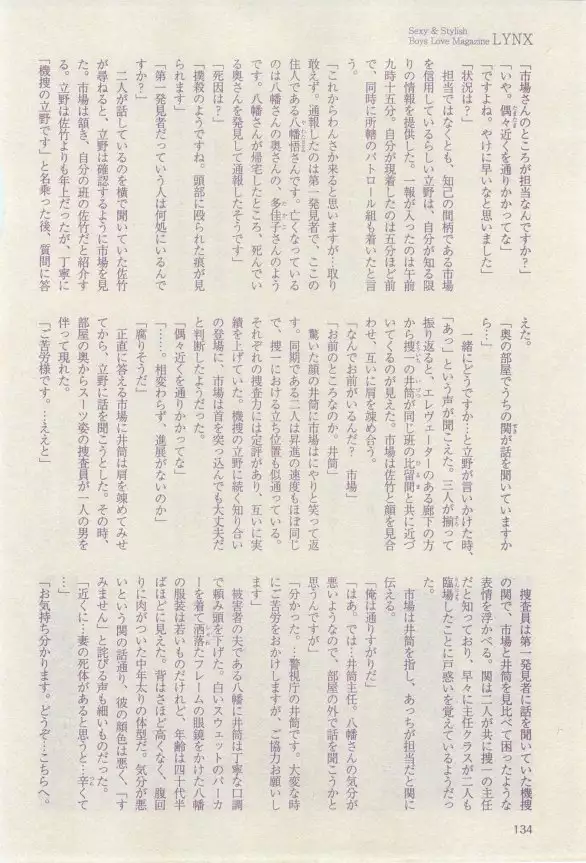 Sexy & Stylish
Boys Love Magazine LYNX
「市場さんのところが担当なんですか？」
「いや。偶々近くを通りかかってな」
「ですよね。やけに早いなと思いました」
「状況は？」
　担当ではなくとも、知己の間柄である市場
を信用しているらしい立野は、自分が知る限
りの情報を提供した。一報が入ったのは午前
九時十五分。自分が現着したのは五分ほど前
で、同時に所轄のパトロール組も着いたと言
う。
「これからわんさか来ると思いますが…取り
敢えず。通報したのは第一発見者で、ここの
住人である八幡悟さんです。亡くなっている
のは八幡さんの奥さんの、多佳子さんのよう
です。八幡さんが帰宅したところ、死んでい
る奥さんを発見して通報したそうです」
「死因は？」
「撲殺のようですね。頭部に殴られた痕が見
られます」
「第一発見者だっていう人は何処にいるんで
すか？」
　二人が話しているのを横で聞いていた佐竹
が尋ねると、立野は確認するように市場を見
た。市場は頷き、自分の班の佐竹だと紹介す
る。立野は佐竹よりも年上だったが、丁寧に
「機捜の立野です」と名乗った後、質問に答
えた。
「奥の部屋でうちの関が話を聞いていますか
ら…」
　一緒にどうですか…と立野が言いかけた時、
「あっ」という声が聞こえた。三人が揃って
振り返ると、エレヴェーターのある廊下の方
から捜一の井筒が同じ班の比留間と共に近づ
いてくるのが見えた。市場は佐竹と顔を見合
わせ、互いに肩を竦め合う。
「なんでお前がいるんだ？　市場」
「お前のところなのか。井筒」
　驚いた顔の井筒に市場はにやりと笑って返
す。同期である二人は昇進の速度もほぼ同じ
で、捜一における立ち位置も似通っている。
それぞれの捜査力には定評があり、互いに実
績を上げていた。機捜の立野に続く知り合い
の登場に、市場は首を突っ込んでも大丈夫だ
と判断したようだった。
「偶々近くを通りかかってな」
「……。相変わらず、進展がないのか」
「腐りそうだ」
　正直に答える市場に井筒は肩を竦めてみせ
てから、立野に話を聞こうとした。その時、
部屋の奥からスーツ姿の捜査員が一人の男を
伴って現れた。
「ご苦労様です。…ええと」
　捜査員は第一発見者に話を聞いていた機捜
の関で、市場と井筒を見比べて困ったような
表情を浮かべる。関は二人が共に捜一の主任
だと知っており、早々に主任クラスが二人も
臨場したことに戸惑いを覚えているようだっ
た。
　市場は井筒を指し、あっちが担当だと関に
伝える。
「俺は通りすがりだ」
「はあ。では…井筒主任。八幡さんの気分が
悪いようなので、部屋の外で話を聞こうかと
思うんですが」
「分かった。…警視庁の井筒です。大変な時
にご苦労をおかけしますが、ご協力お願いし
ます」
　被害者の夫である八幡に井筒は丁寧な口調
で頼み頭を下げた。白いスウェットのパーカ
ーを着て洒落たフレームの眼鏡をかけた八幡
の服装は若いものだけれど、年齢は四十代半
ばほどに見えた。背はさほど高くなく、腹回
りに肉がついた中年太りの体型だ。気分が悪
いという関の話通り、彼の顔色は悪く、「す
みません」と詫びる声も細いものだった。
「近くに…妻の死体があると思うと…辛くて
…」
「お気持ち分かります。どうぞ…こちらへ。
134